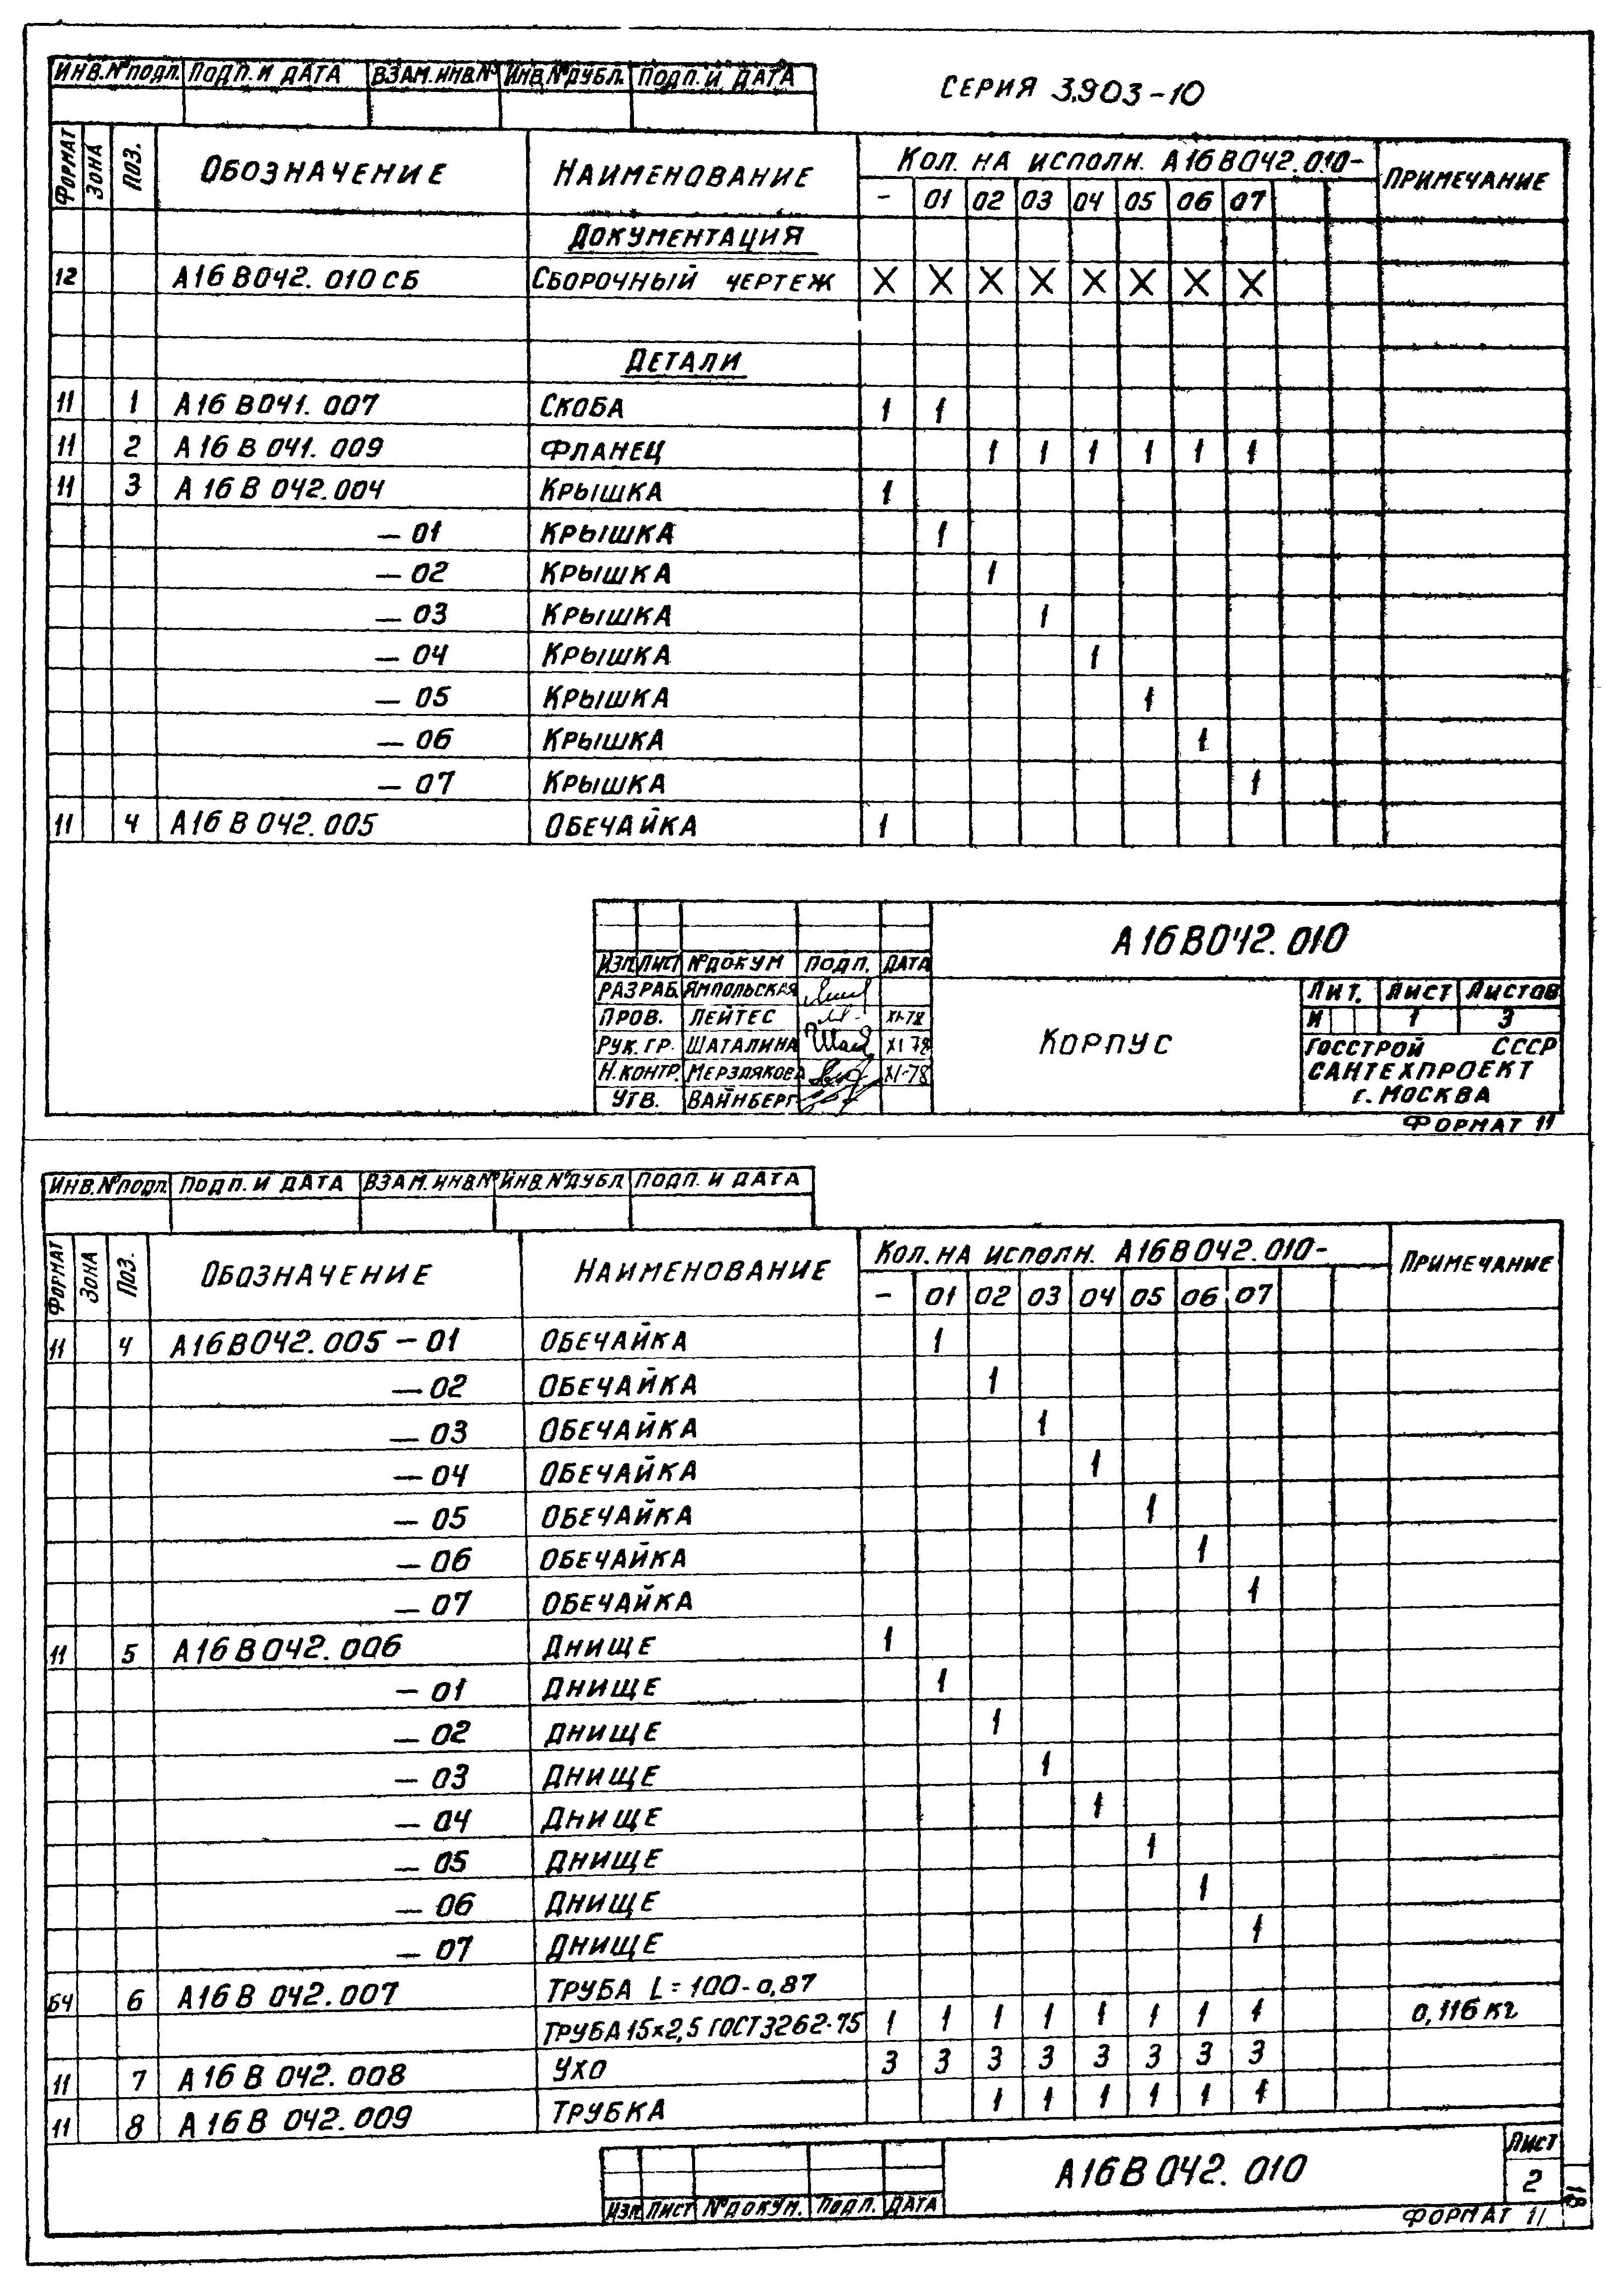 ИНВ.№ПОДЛ. ПОДП. И ДАТА ВЗАМ.ИНВ.№ ИНВ.№ДУБЛ. ПОДП. И ДАТА
СЕРИЯ 3.903-10
ФОРМАТ ЗОНА ПОЗ. ОБОЗНАЧЕНИЕ НАИМЕНОВАНИЕ КОЛ. НА ИСПОЛН. А16В042.010- ПРИМЕЧАНИЕ
- 01 02 03 04 05 06 07
ДОКУМЕНТАЦИЯ
12 А16В042.010 СБ СБОРОЧНЫЙ ЧЕРТЕЖ Х Х Х Х Х Х Х Х
ДЕТАЛИ
11 1 А16В041.007 СКОБА 1 1
11 2 А16В041.009 ФЛАНЕЦ 1 1 1 1 1 1
11 3 А16В042.004 КРЫШКА 1
— 01 КРЫШКА 1
— 02 КРЫШКА 1
— 03 КРЫШКА 1
— 04 КРЫШКА 1
— 05 КРЫШКА 1
— 06 КРЫШКА 1
— 07 КРЫШКА 1
11 4 А16В042.005 ОБЕЧАЙКА 1
А16В042.010
ИЗМ ЛИСТ №ДОКУМ ПОДП. ДАТА
РАЗРАБ. ЯМПОЛЬСКАЯ
ПРОВ. ЛЕЙТЕС XI-78
РУК. ГР. ШАТАЛИНА XI 78
Н.КОНТР. МЕРЗЛЯКОВА XI-78
УТВ. ВАЙНБЕРГ
КОРПУС
ЛИТ. ЛИСТ ЛИСТОВ
И 1 3
ГОССТРОЙ СССР
САНТЕХПРОЕКТ
г. МОСКВА
ФОРМАТ 11
ИНВ.№ПОДЛ. ПОДП. И ДАТА ВЗАМ.ИНВ.№ ИНВ.№ДУБЛ ПОДП. И ДАТА
ФОРМАТ ЗОНА ПОЗ. ОБОЗНАЧЕНИЕ НАИМЕНОВАНИЕ КОЛ. НА ИСПОЛН. А16В042.010- ПРИМЕЧАНИЕ
- 01 02 03 04 05 06 07
11 4 А16В042.005 — 01 ОБЕЧАЙКА 1
— 02 ОБЕЧАЙКА 1
— 03 ОБЕЧАЙКА 1
— 04 ОБЕЧАЙКА 1
— 05 ОБЕЧАЙКА 1
— 06 ОБЕЧАЙКА 1
— 07 ОБЕЧАЙКА 1
11 5 А16В042.006 ДНИЩЕ 1
— 01 ДНИЩЕ 1
— 02 ДНИЩЕ 1
— 03 ДНИЩЕ 1
— 04 ДНИЩЕ 1
— 05 ДНИЩЕ 1
— 06 ДНИЩЕ 1
— 07 ДНИЩЕ 1
БЧ 6 А16В042.007 ТРУБА L=100-0,87
ТРУБА 15×2,5 ГОСТ 3262-75 1 1 1 1 1 1 1 1 0,116 кг
11 7 А16В042.008 УХО 3 3 3 3 3 3 3 3
11 8 А16В042.009 ТРУБКА 1 1 1 1 1 1
А16В042.010
ЛИСТ
2
ИЗМ ЛИСТ №ДОКУМ. ПОДП. ДАТА
ФОРМАТ 11